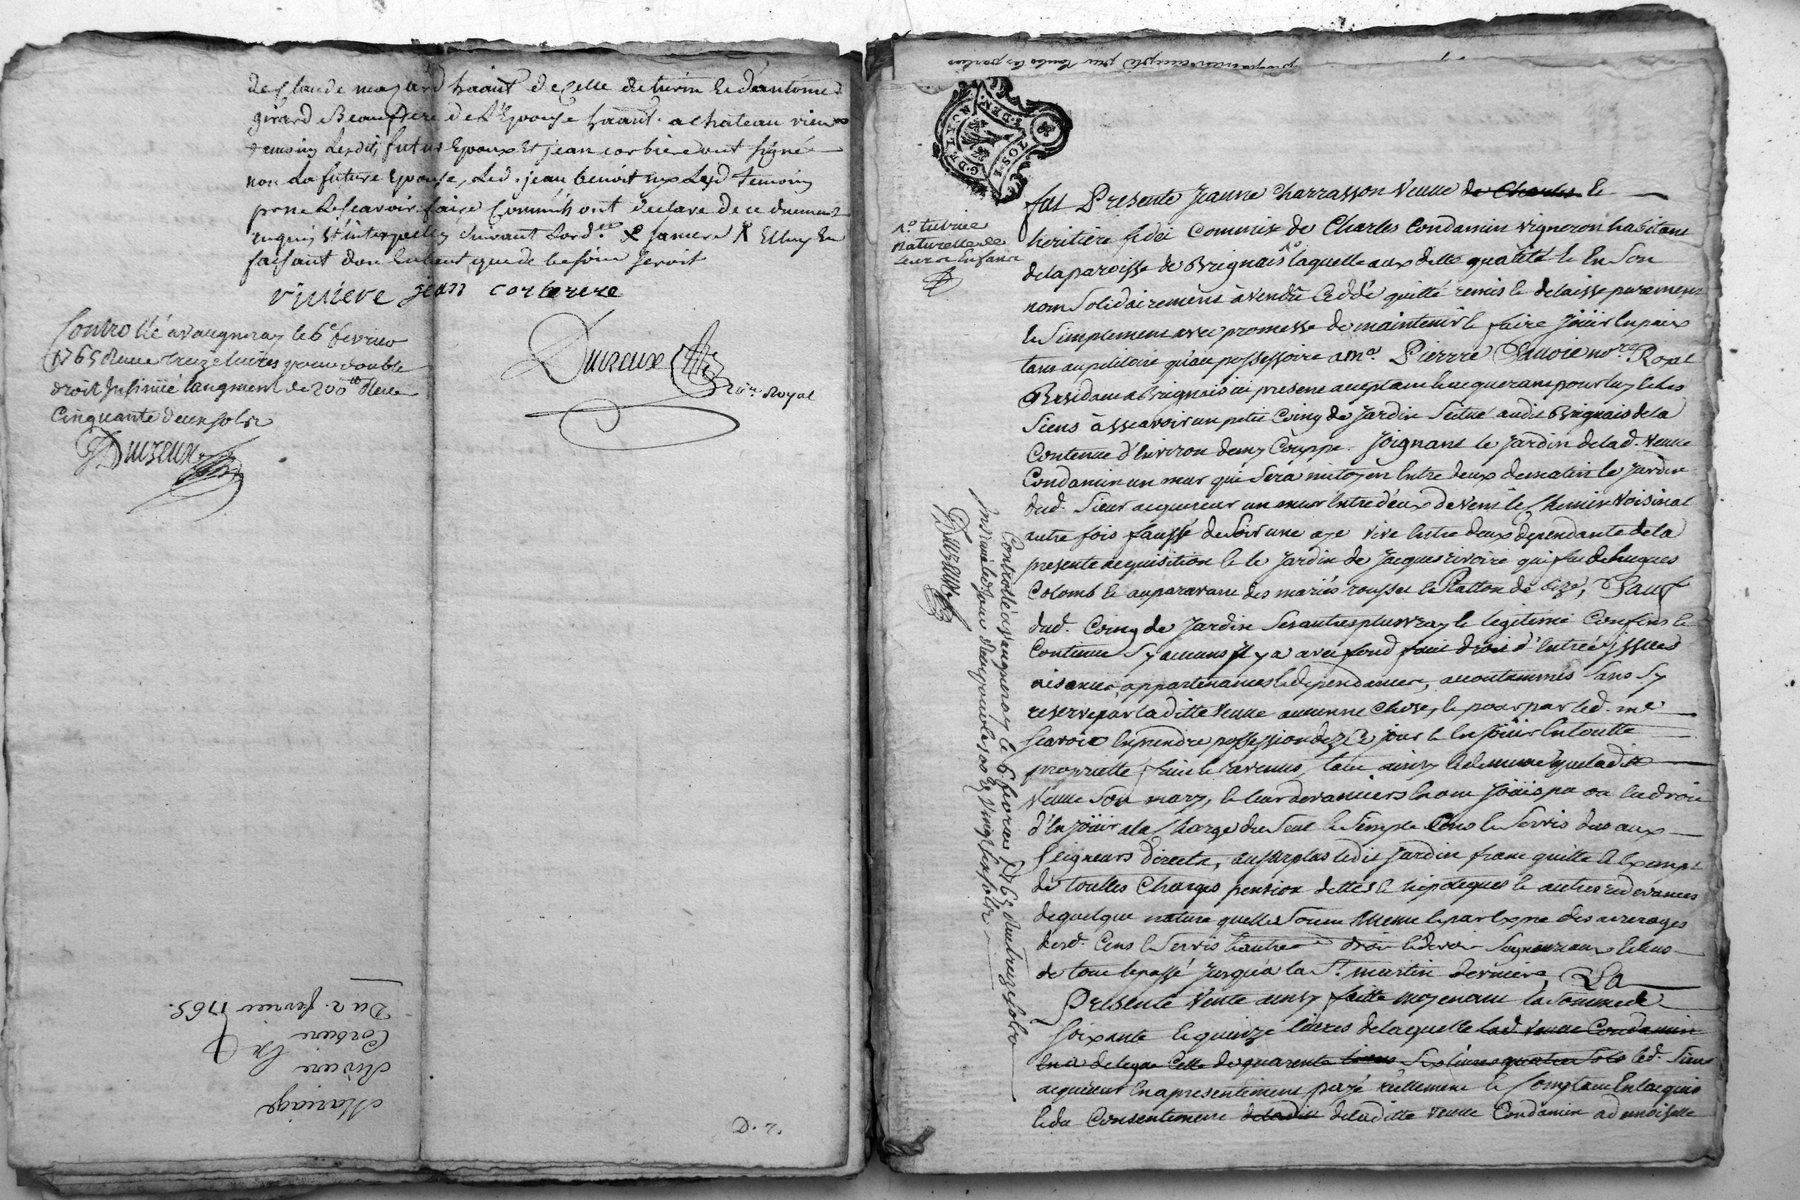 de Claude mazard habitant de celle de thurin et d'antoine
girard Beaufrere de l'Epouse habitant a chateau vieux
temoins Lesdits futur Epoux Et jean corbiere ont signé
non La future Epouse, Led. jean benoit ny Lesd temoins
pour ne le scavoir faire comme ils ont declaré de ce duement
enquis Et interpellés suivant Lord.ce
faisant don autant que de besoin seroit
riviere jean corbiere
Controllé a vaugneray le 6e fevrier
1765 Reçu treize livres pour double
droit Insinué l'augment de 200tt Reçu
cinquante deux sols
Duizeux
Duizeux
No.re Royal
Mariage
Riviere Et
Corbiere
Du 2. fevrier 1765.
G. DE LYON
2. SOLS
1° tutrice
naturelle de
leurs Enfans
fut Presente Jeanne Charrasson veuve de Charles Et
heritiere fidei commix de Charles Condamin vigneron habitant
de la paroisse de Brignais 1° laquelle aux dittes qualités Et En son
nom solidairement à vendu ceddé quitté remis Et delaissé purement
Et simplement avec promesse de maintenir Et faire Jöüir En paix
tant au petitoire qu'au possessoire a me. Pierre Savoie no.re Royal
Residant a Brignais ici present acceptant Et acquerant pour luy Et les
siens à sscavoir un petit Coing de Jardin scitué audit Brignais de la
Contenue d'Environ demy Couppe. Joignant le Jardin de lad. veuve
Condamin un mur qui sera mitoyen Entre deux de matin le Jardin
dud. sieur acquereur un mur Entre d'eux de vent le Chemin voisinal
autre fois faussé de soir une aye vive Entre deux dependante de la
presente acquisition Et le Jardin de Jacques rivoire qui fut de hugues
Colomb Et auparavant des mariés rousset Et Ratton de bize, Sauf
dud. Coing de Jardin ses autres plus vray Et legitime Confins Et
Contenue s'y aucuns Il y a avec fond fruit droit d'Entrée issues
aisances, appartenances Et dependances, accoutummés sans s'y
reserver par la ditte veuve aucunne chose, Et pour par led. me
Savoie En prendre possession dez Ce jour Et En Jöüir En toutte
propriette, fruit Et revenus, tout ainsy Et de meme que ladite
veuve son mary, Et leur devanciers En ont Jöüis pu ou eu droit
d'En jöüir a la Charge du seul Et simple Cens Et servis dus aux
seigneurs directs, au surplus ledit Jardin franc quitte Et Exempt
de touttes charges pension dettes Et hipoteques Et autres redevances
de quelque nature quelles soient Meme Et par Expre des arrerages
desd. Cens Et servis Et autre droit Et devoir seigneuriaux Echus
de tout le passé jusqu'a la St. martin derniere, La
Présente vente ainsy faitte moyenant la somme de
soixante Et quinze livres de laquelle lad veuve Condamin
En a delegué Celle de quarante livres six livres quatre sols led. sieur
acquereur En a presentement payé reellement Et Comptant En Lacquis
Et du Consentement de ladite de la ditte veuve Condamin a demoiselle
Controllé a vaugneray le 6 fevrier 1765 Reçu treize sols
Insinué led jour
Duizeux